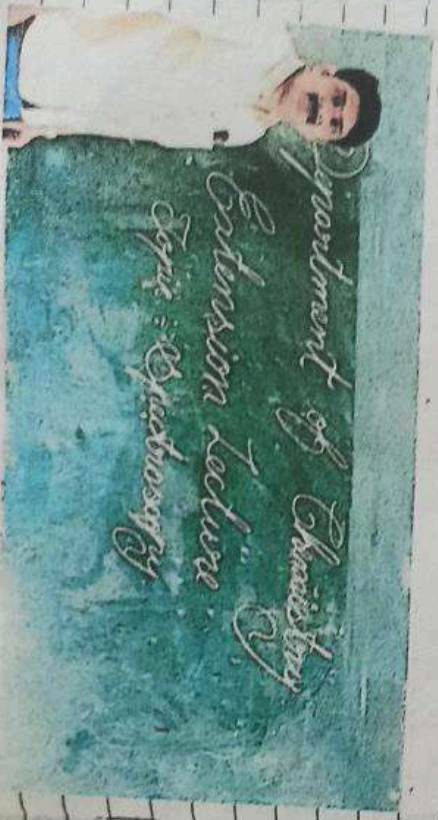 Department of Chemistry
Extension Lecture
Topic : Spectroscopy